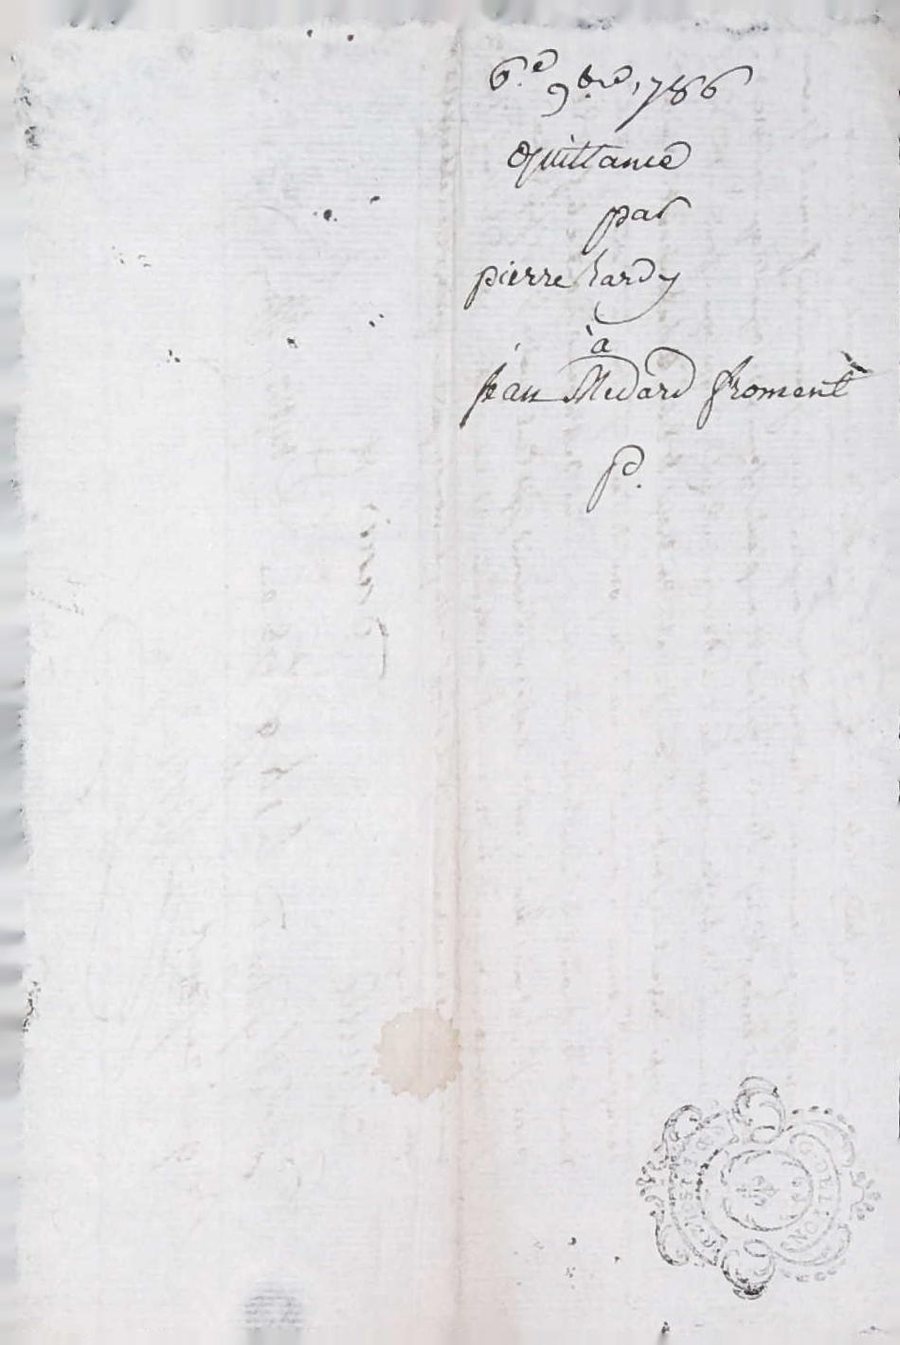 6.e 9bre 1786
Quittance
par
pierre hardy
à
jean Medard froment
p.